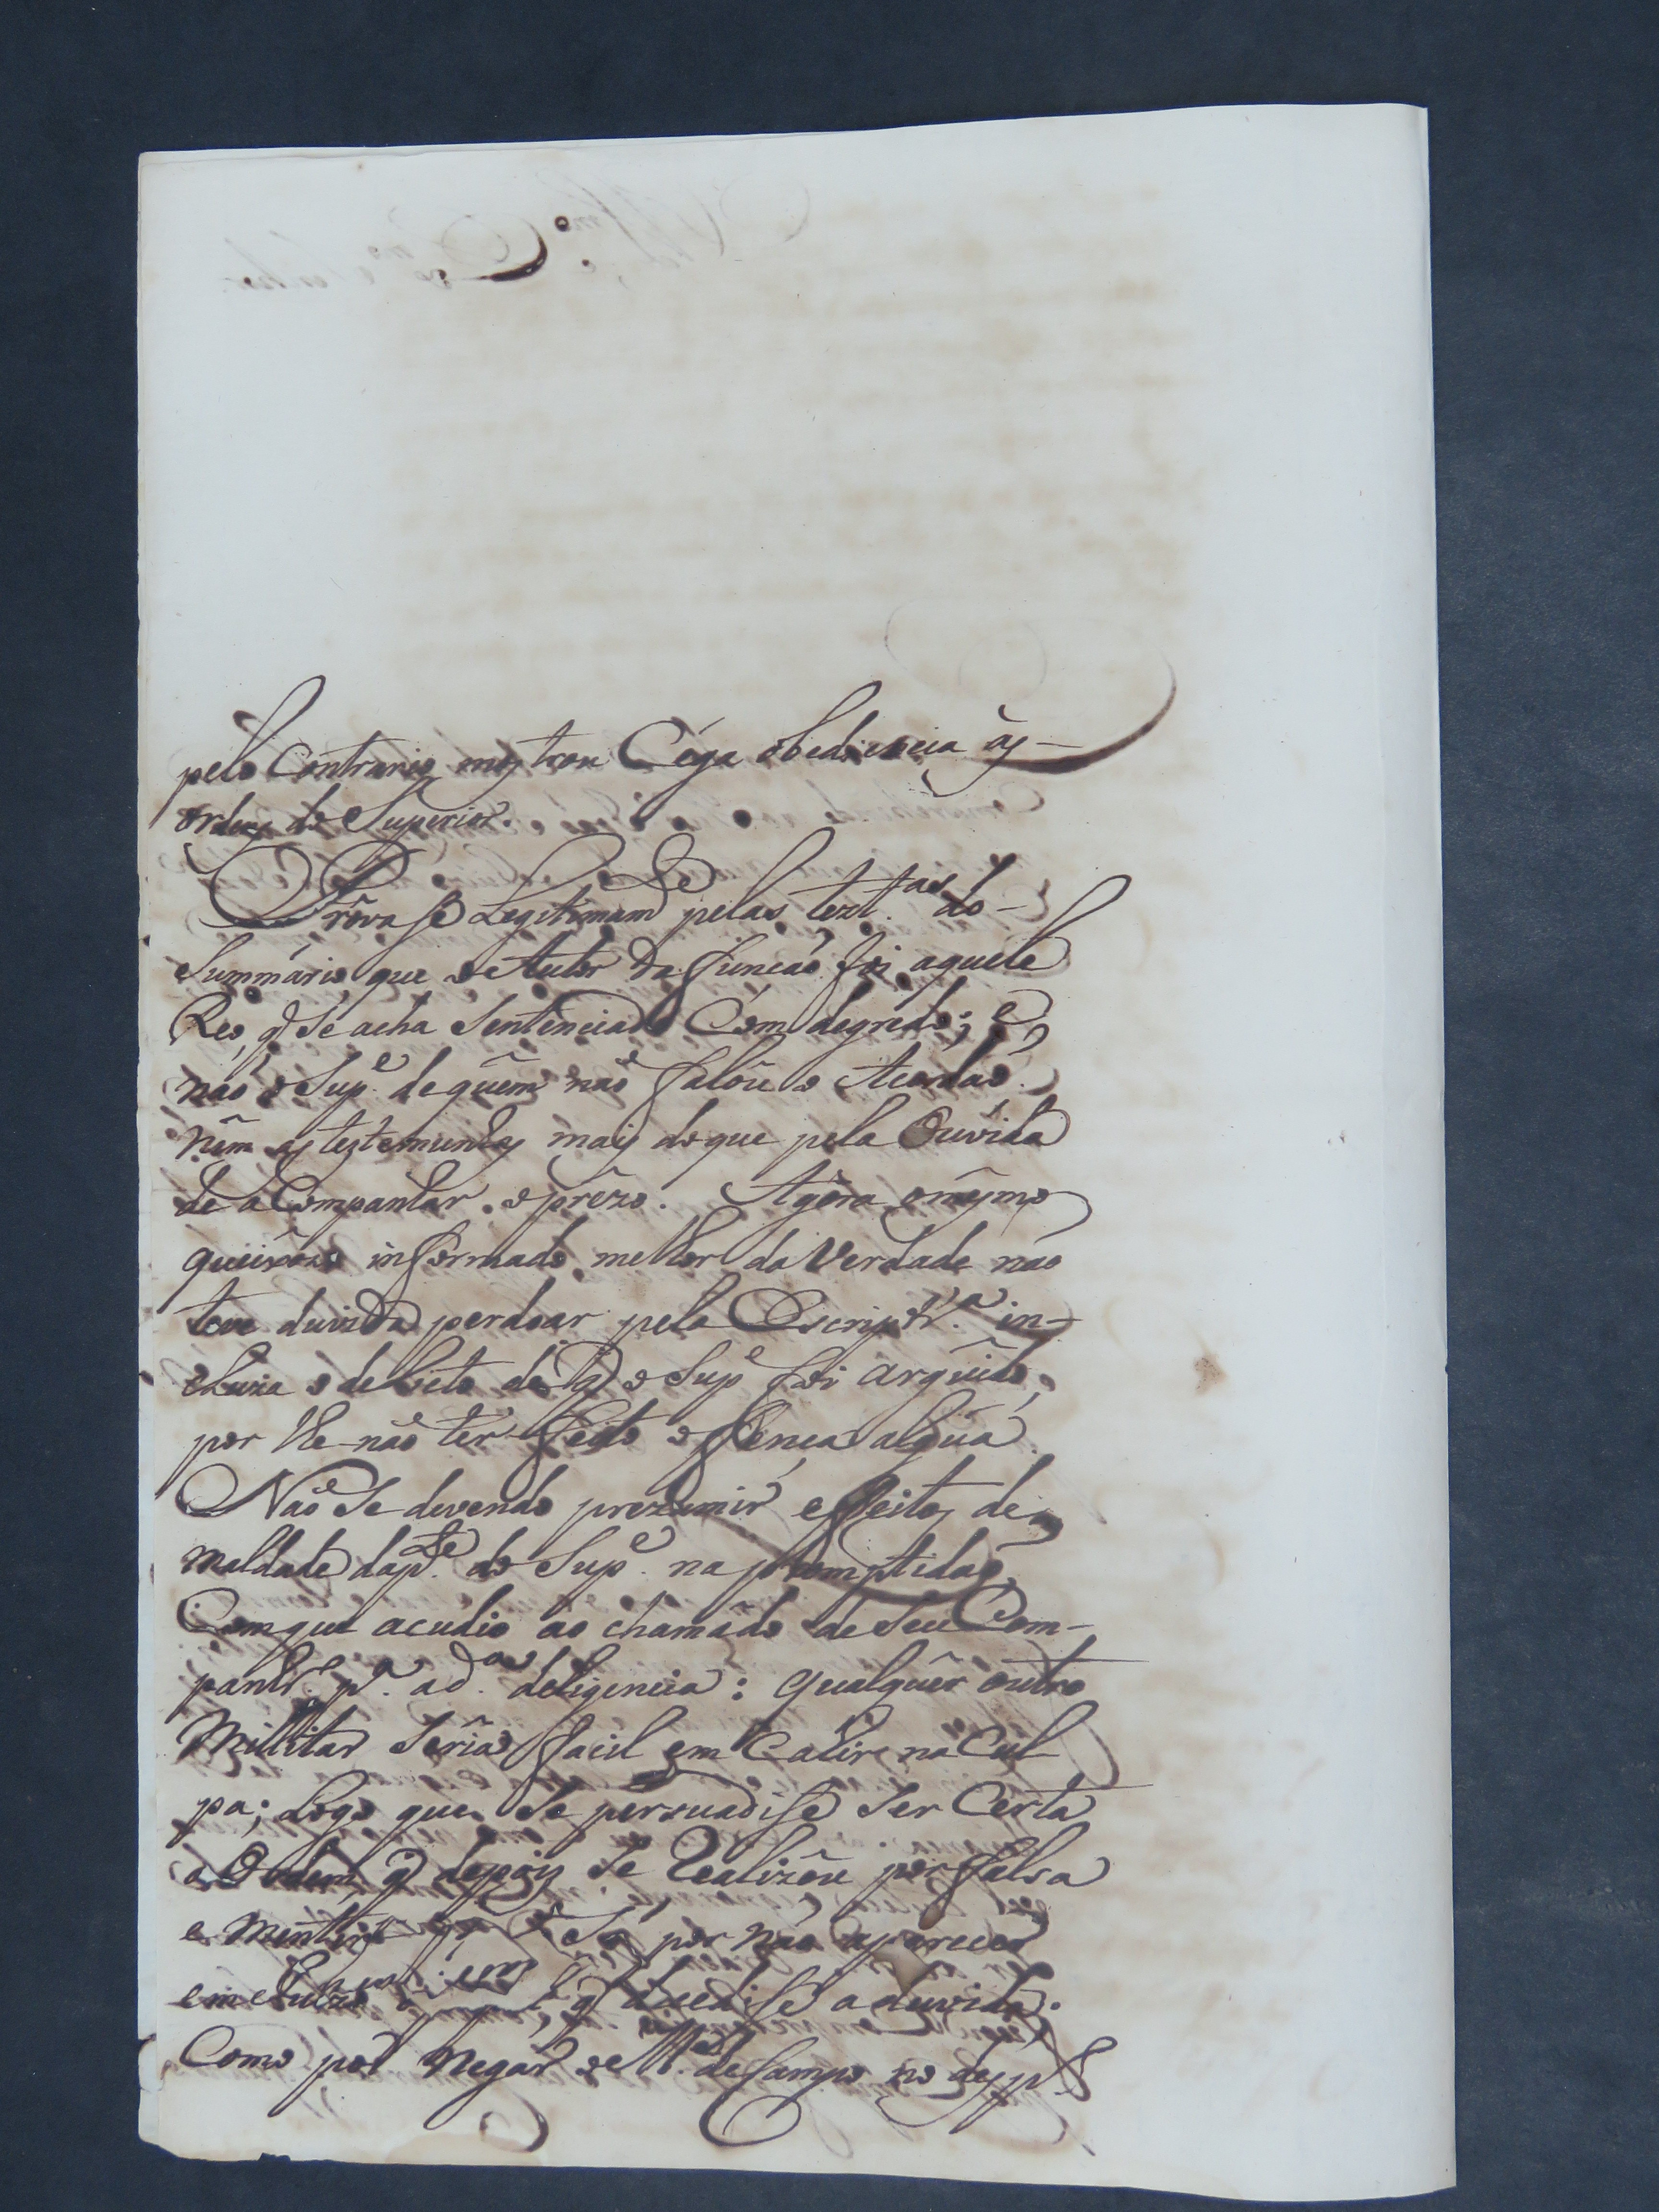 pelo Contrario mostrou Céga obediencia ás
ordens do Superior.
Próvase Legitimam.de pelas tezt.as do
Summário que o Autor da função foi aquele
Reo, q̃ se acha Sentenciado Com degredo; e
não o Sup.e de quêm não falôu o Acordaõ
nêm as teztemunhas mais do que pela Ouvida
de aCompanhar o prêzo. Agóra o mêsmo
queixozo informado melhor da Verdade não
teve duvida perdoar pela Escript.ra in-
cluza o delicto de q̃ o Sup.e foi arguido,
por lhe não ter feito offença algũa.
Não se devendo prezumir effeitos de
maldade da p.te do Sup.e na promptidaõ
Comque acudio ao chamádo de seu Com-
panhr.o p.a a d.a deligencia: qualquêr outro
Millitar seria facil em Cahir na Cul
pa; Logo que se persuadise ser Certa
a Ordem q̃ depois se Realizou por falsa
e mentiroza Só por não aparecer
em Juizo q̃ decedise a duvida.
Como por negar o M.e de Campo no desp.o